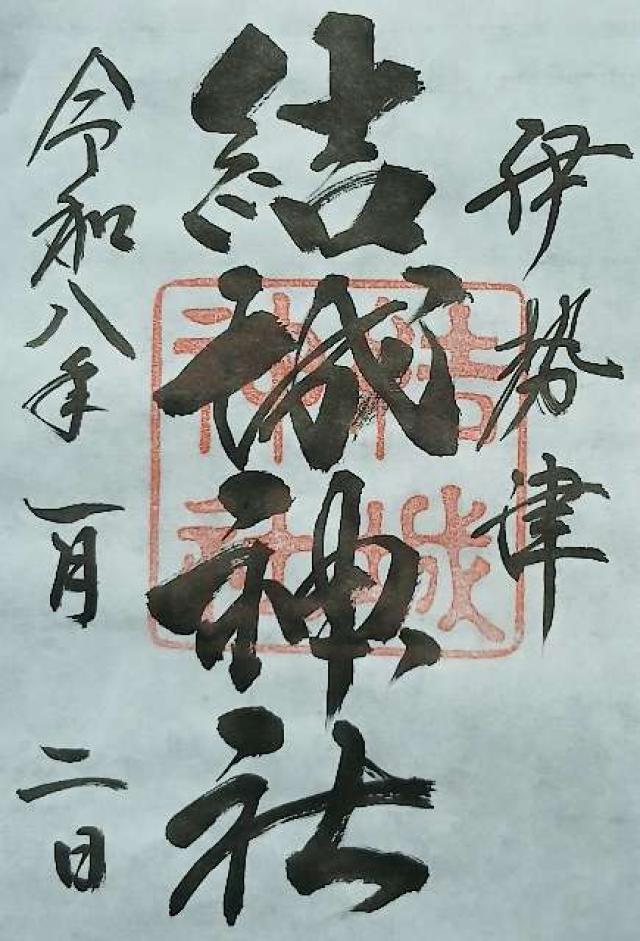 伊勢津
結城神社
結城
神社
令和八年 一月 二日